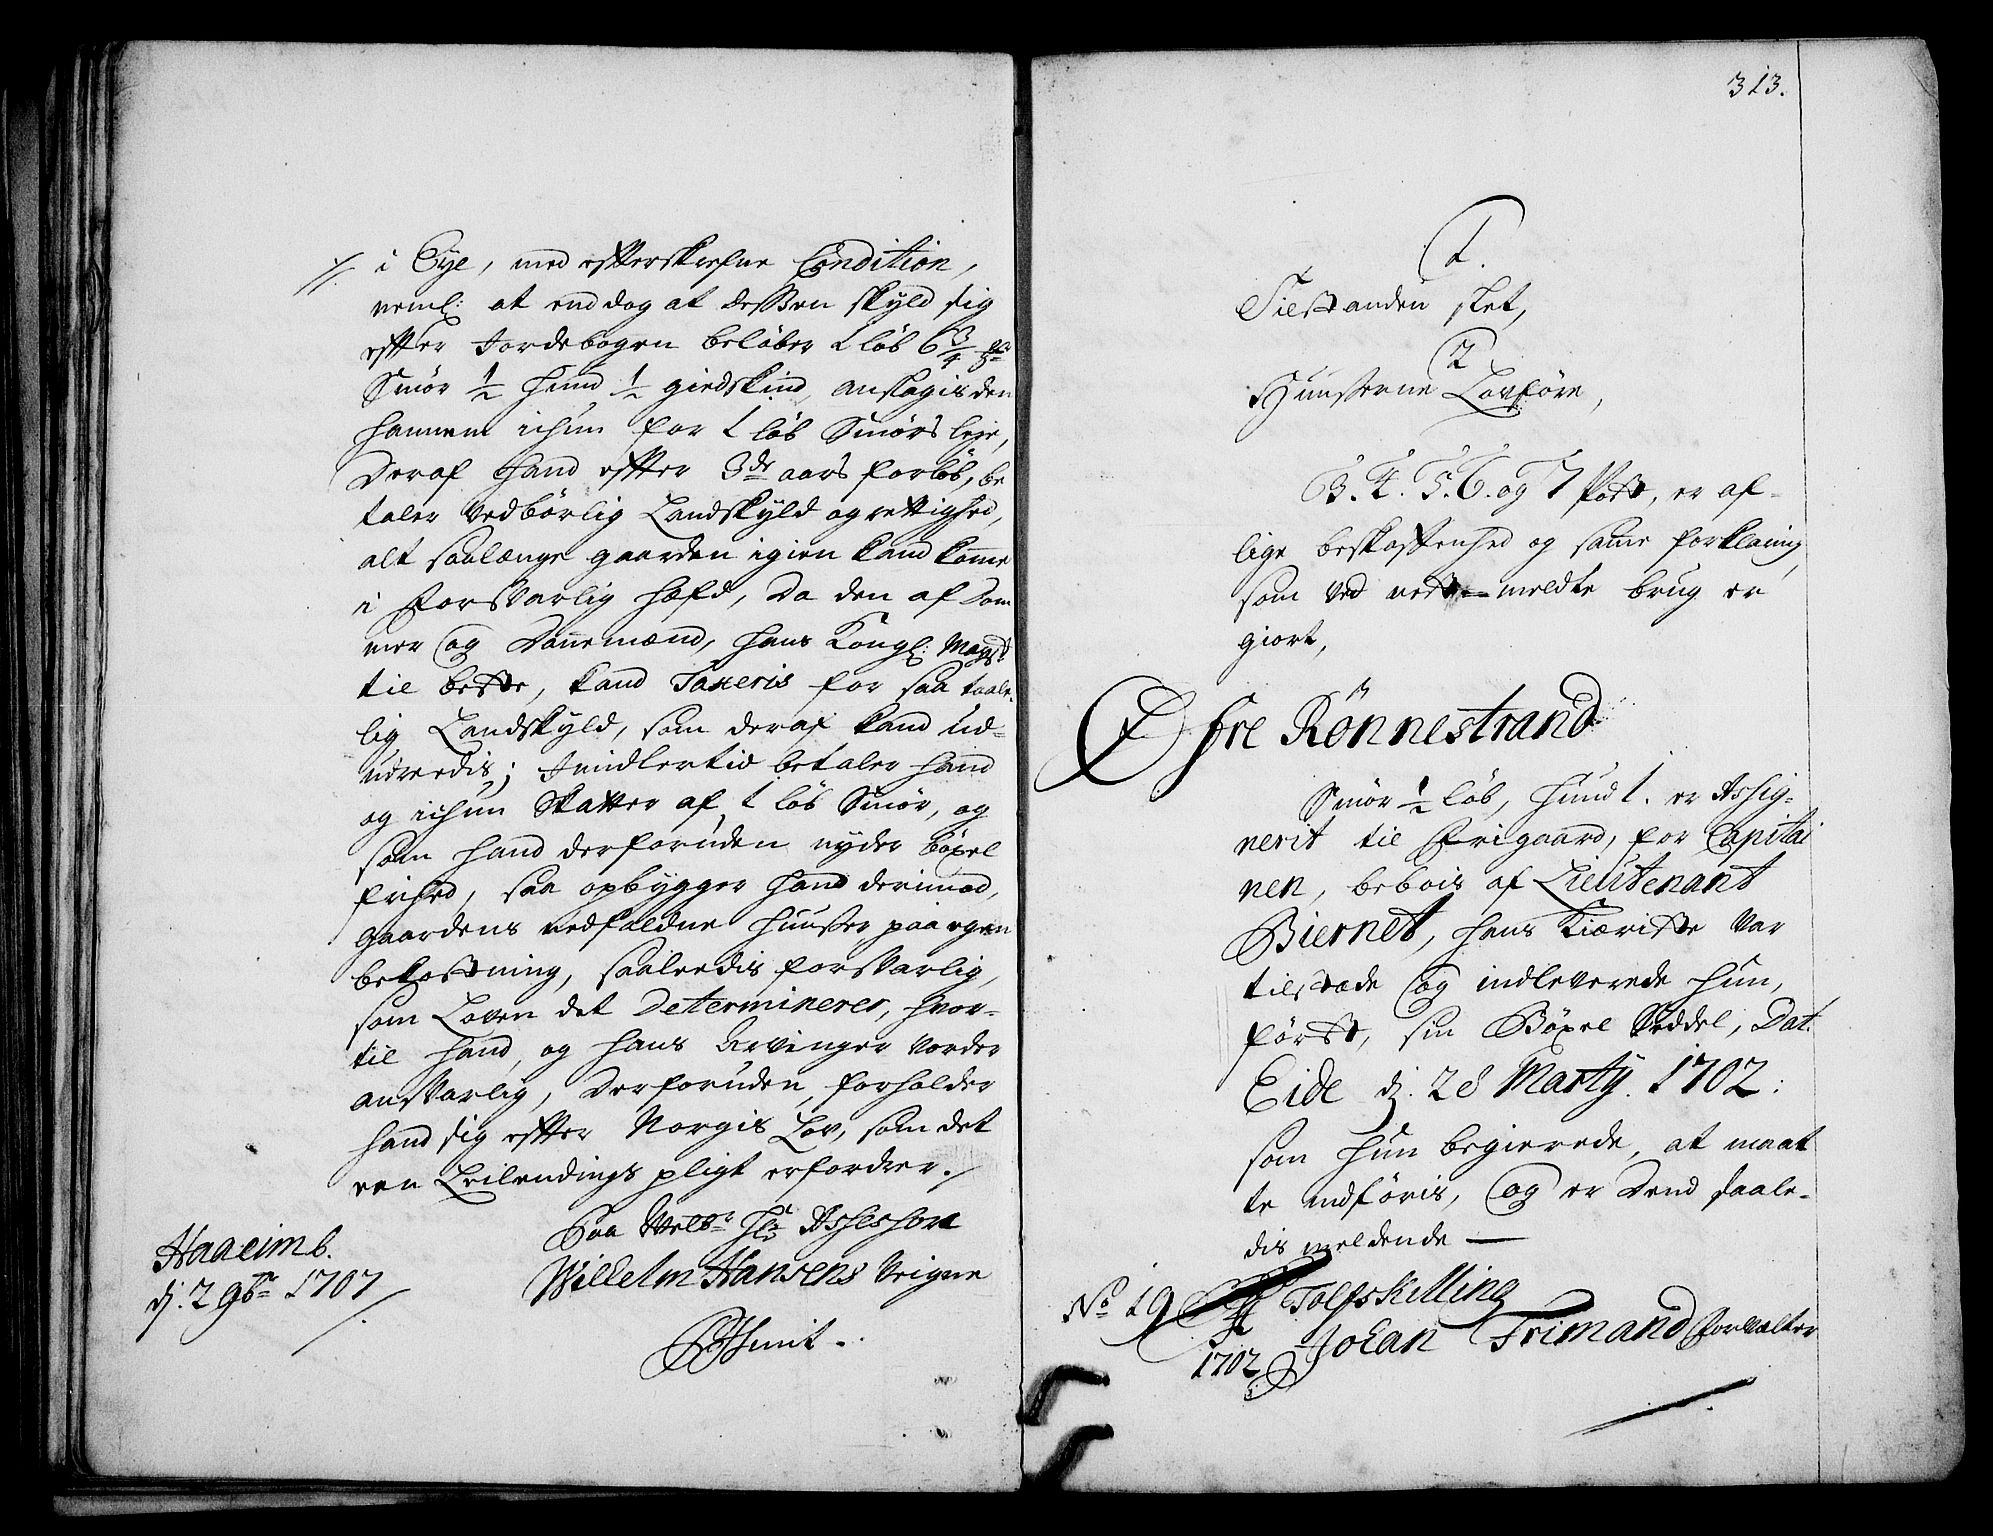 i Eye, med effterskrefne Condition,
neml: at end dog at desSen skyld sig
effter Jordebogen beløber 1 løb 6 3/4
Smør 1/2 Hund 1/2 giedskind, anslagis den
hannem ichun for 1 løb Smørs leje,
Deraf Hand effter 3de aars forløb, be
taler Vedbørlig Landskyld og rettighed,
alt saalænge gaarden igien kand komme
i forsVarlig Hæfd, Da den af Dom
mer og Dannemænd, Hans Kongl: Mayst
til beste, kand Taxeris for saa taale-
lig Landskyld, som deraf kand ud-
udreedis; Imidlertid betaler Hand
og ichun Skatter af 1 løb Smør, og
som Hand derforuden nyder böxel
frihed, saa opbygger Hand derimod,
gaardens nedfaldne Huusser paa egen
bekostning, saaleedis forsVarlig,
som Loven det Determinerer, hvor-
til Hand, og Hans Arvinger vorder
ansVarlig, Derforuden forholder
Hand sig effter Norgis Lov, som det
een Leilendings pligt erfordrer./
Paa Welbr Hr Assessore
Wilhelm Hansens Veigne
Smit.
Haaeimb.
dj. 2 9br 1707
313.
1.
Tilstanden slet,
2
Huusserne Lovføre,
3. 4. 5. 6. og 7 Post, er af-
lige beskaffenhed og samme forklaring,
som ved nest meldte brug er
giort,
Øfre Rönnestrand
Smør 1/2 løb, Hund 1. er Assig-
nerit til Frigaard, for Capitai
nen, bebois af Lieutenant
Biernet, Hans Kiæriste var
tilstæde og indleverede Hun,
først, sin Böxel Seddel, Dat.
Eide dj. 28 Marty. 1702:
som Hun begierede, at maat
te indføris, og er Dend saale-
dis meldende —
No 19 Tolfskilling
1702 Johan Frimand Forvalter